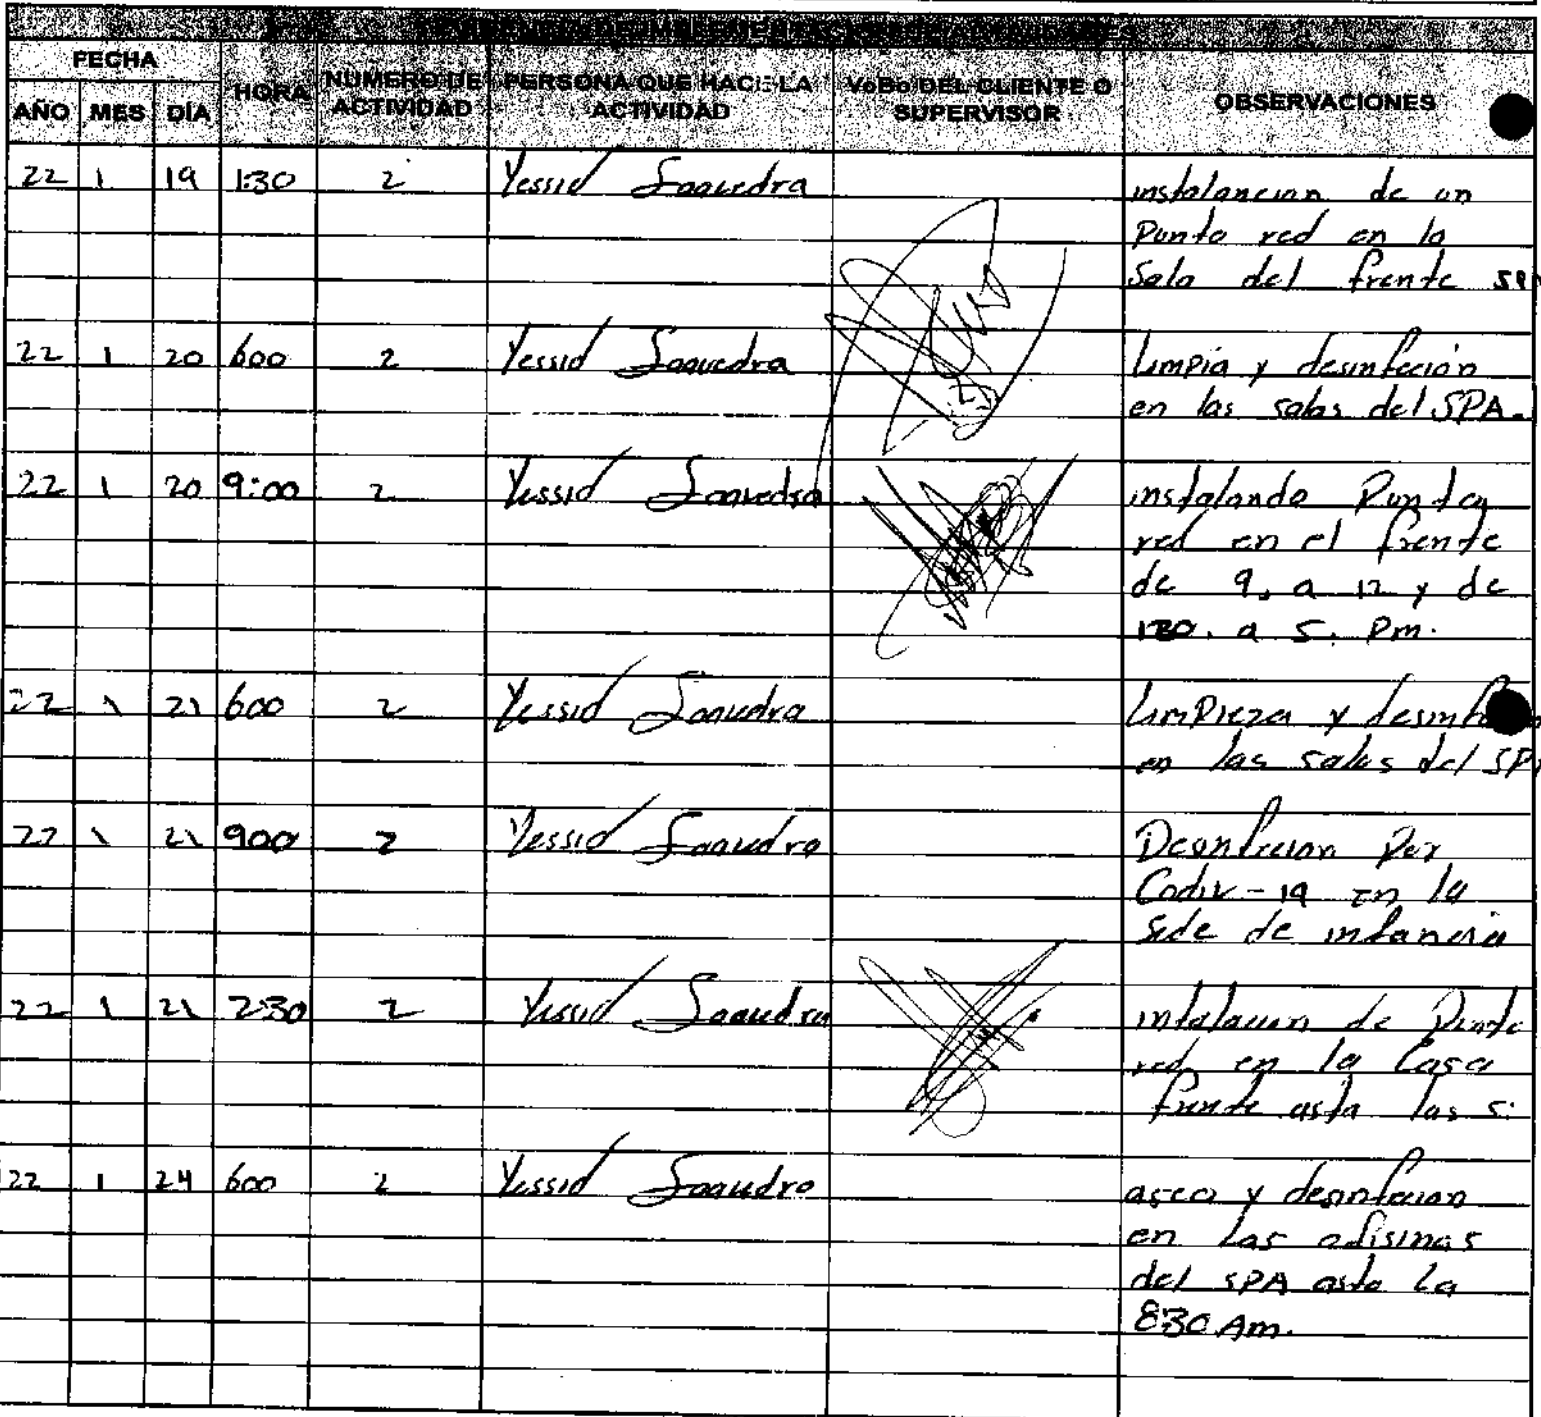 FECHA
HORA
NUMERO DE ACTIVIDAD
PERSONA QUE HACE LA ACTIVIDAD
VoBo DEL CLIENTE O SUPERVISOR
OBSERVACIONES
AÑO MES DÍA
22 1 19 1:30 2 Yessid Saavedra instalancion de un
Punto red en la
Sala del frente
22 1 20 600 2 Yessid Saavedra limpia y desinfeción
en las salas del SPA.
22 1 20 9:00 2 Yessid Saavedra instalando Punto
red en el frente
de 9. a 12 y de
130. a 5. Pm.
22 1 21 600 2 Yessid Saavedra LimPieza y
en las salas del
22 1 21 900 2 Yessid Saavedra Desinfecion Por
Codiv-19 en la
Sede de infancia
22 1 21 2:30 2 Yessid Saavedra intalacion de Punto
red en la Casa
frente asta las 5:
22 1 24 600 2 Yessid Saavedra aseo y desinfecion
en Las ofisinas
del SPA asta La
8:30 Am.